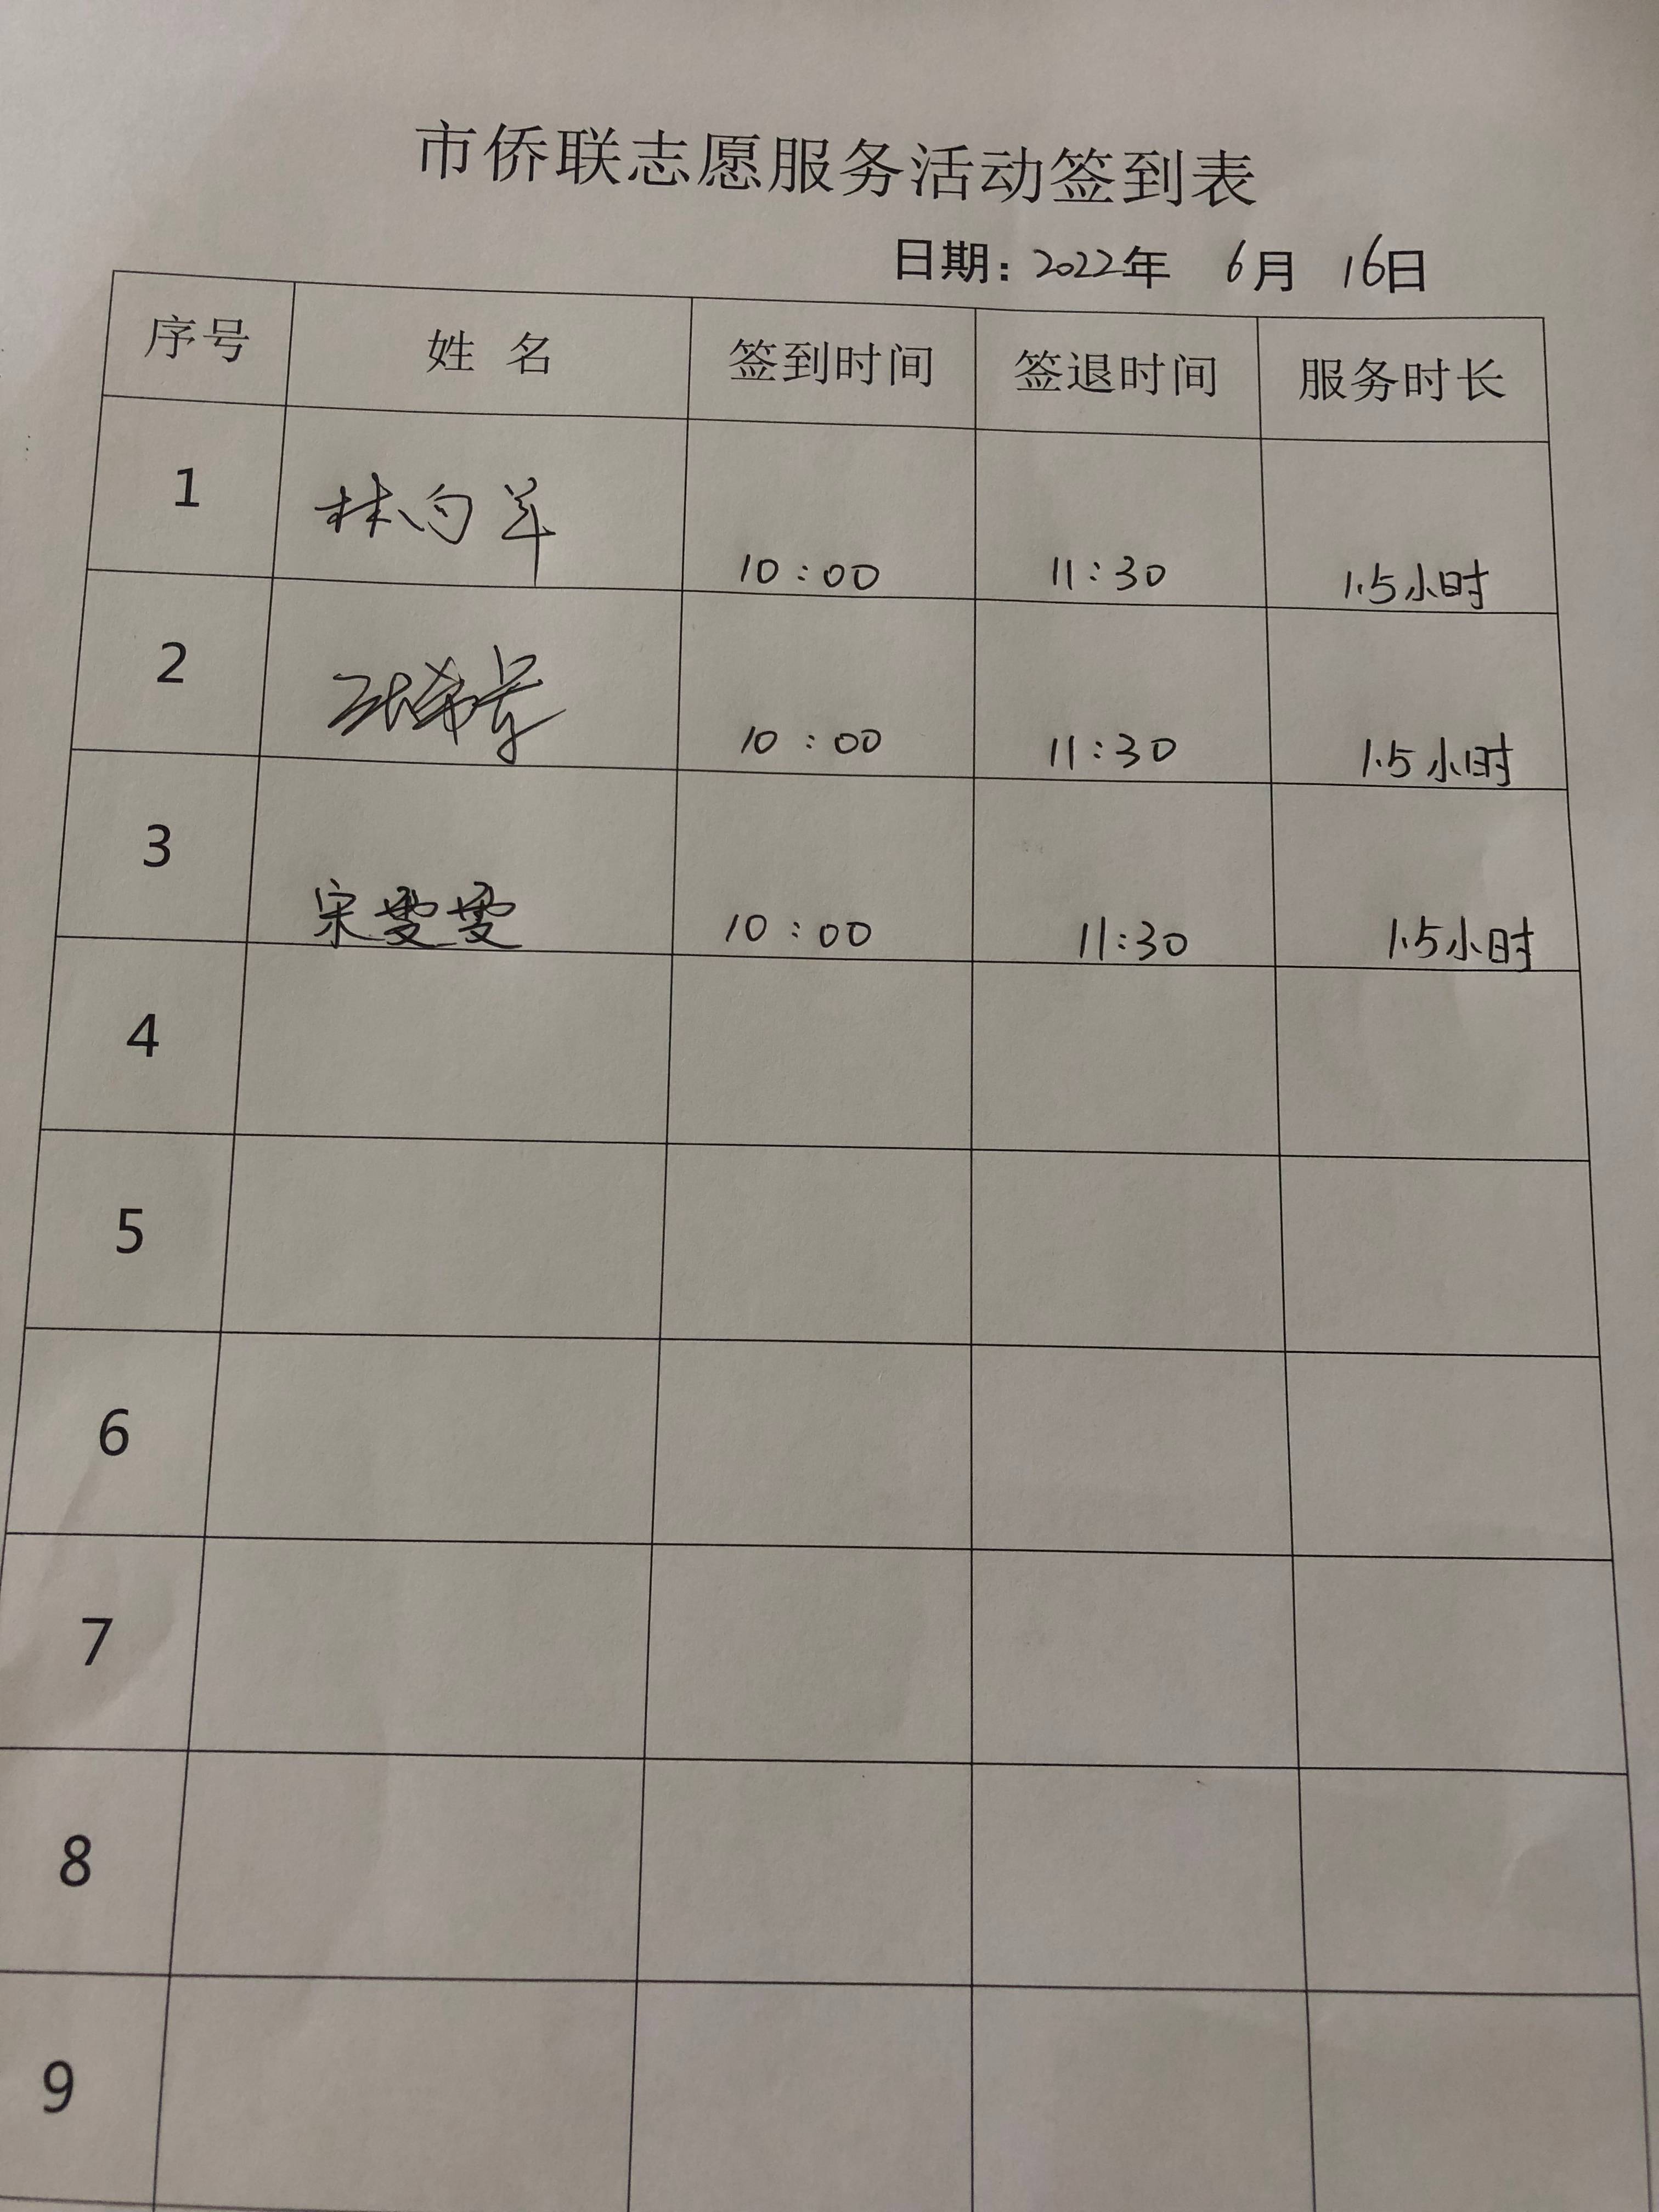 市侨联志愿服务活动签到表
日期：2022年 6月 16日
序号 姓名 签到时间 签退时间 服务时长
1 林向羊 10:00 11:30 1.5小时
2 10:00 11:30 1.5小时
3 宋雯雯 10:00 11:30 1.5小时
4
5
6
7
8
9